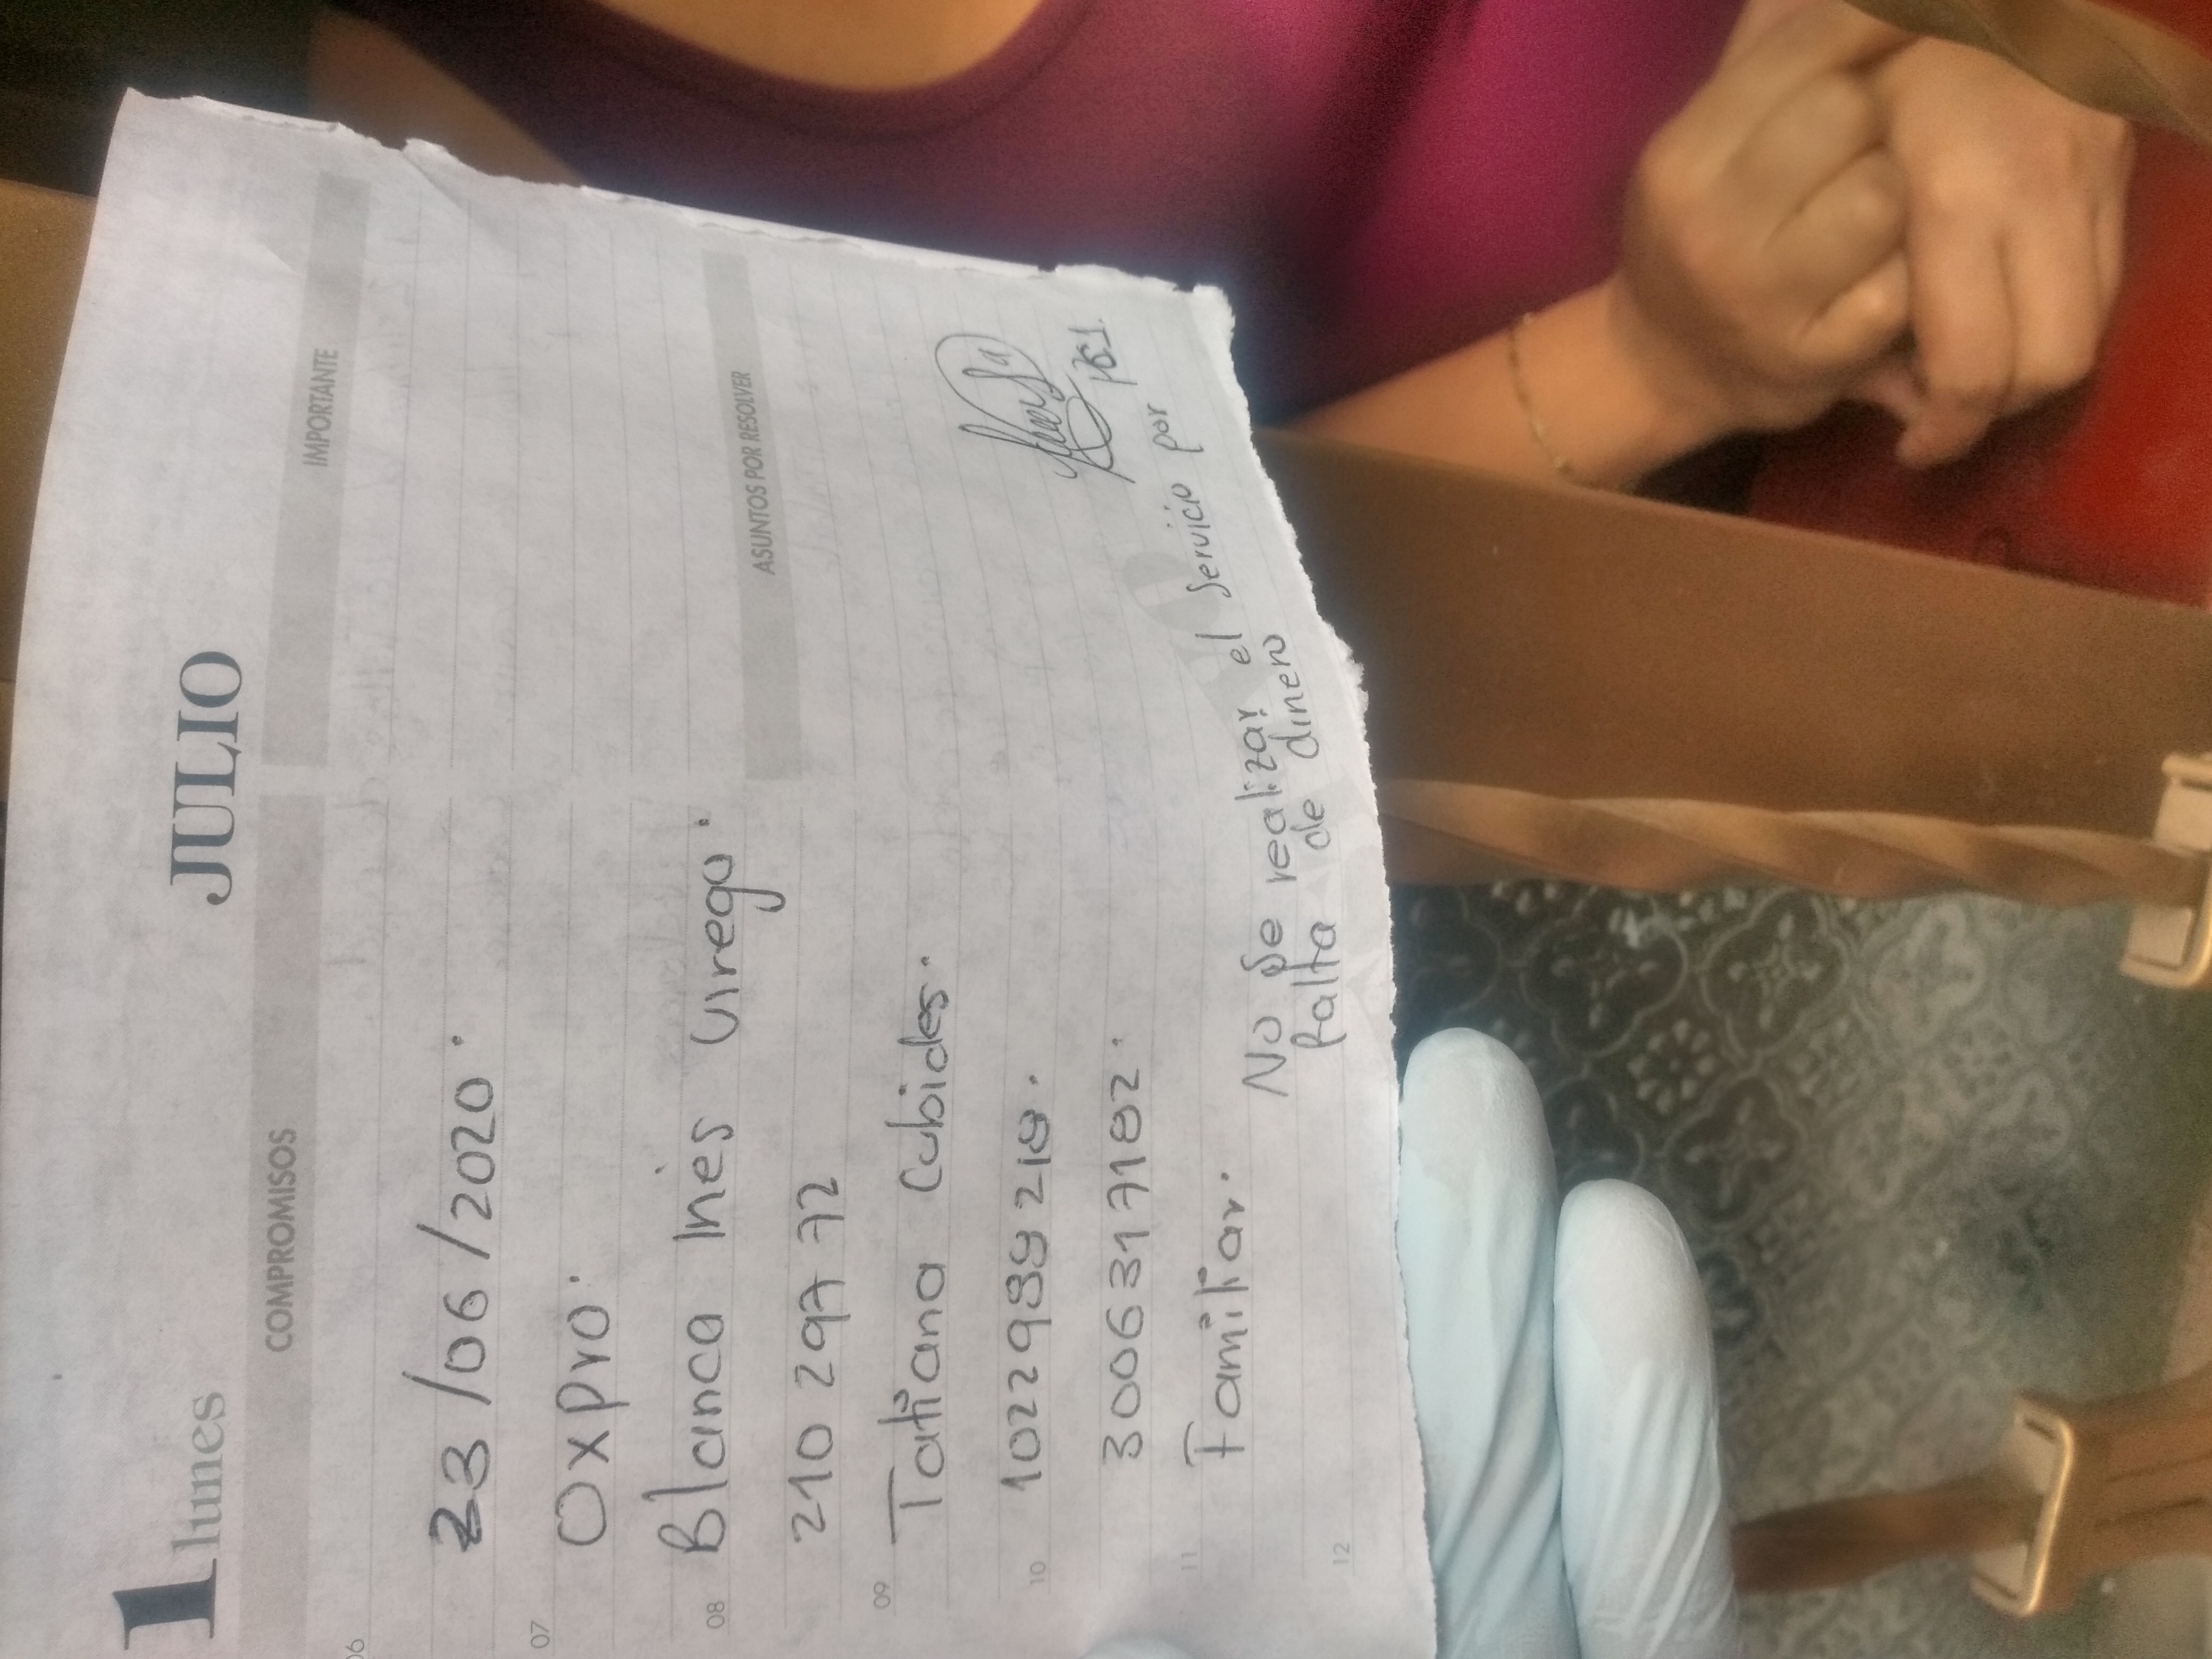 1 lunes JULIO
COMPROMISOS IMPORTANTE
06
23/06/2020.
07
Oxpro.
08 Blanca Ines Urrego.
ASUNTOS POR RESOLVER
210 297 72
09
Tatiana Cubides.
10
3006317182.
11
Familiar.
No se realizar el servicio por
falta de dinero
12